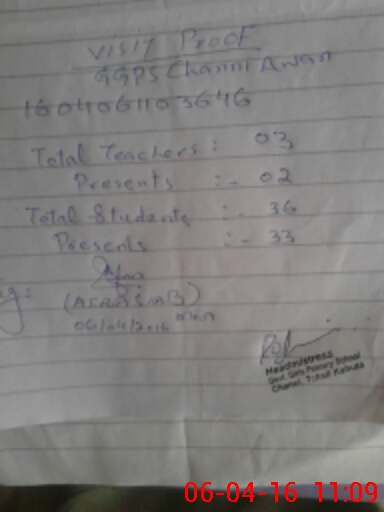 Visit Proof
GGPS Channi Awan
Total Teachers : 03
Presents :- 02
Total Students :- 36
Presents :- 33
06/04/2016
Headmistress
Govt. Girls Primary School
Channi, Tehsil
06-04-16 11:09